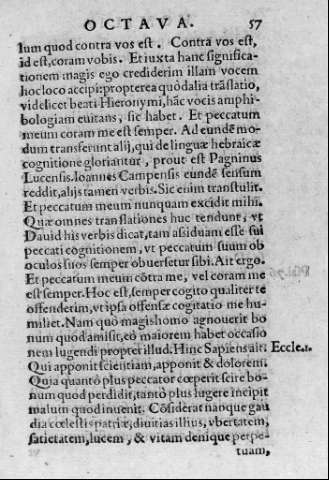 OCTAVA. 57
lum quod contra vos est. Contra vos est,
id est, coram vobis. Et iuxta hanc significa-
tionem magis ego crediderim illam vocem
hoc loco accipi: propterea quòd alia trãslatio,
videlicet beati Hieronymi, hãc vocis amphi-
bologiam euitans, sic habet. Et peccatum
meum coram me est semper. Ad eundẽ mo-
dum transferunt alij, qui de linguæ hebraicæ
cognitione gloriantur, prout est Pagninus
Lucensis. Ioannes Campensis eundẽ sensum
reddit, alijs tamen verbis. Sic enim transtulit.
Et peccatum meum nunquam excidit mihi.
Quæ omnes translationes huc tendunt, vt
Dauid his verbis dicat, tam assiduam esse sui
peccati cognitionem, vt peccatum suum ob
oculos suos semper obuersetur sibi. Ait ergo.
Et peccatum meum cõtra me, vel coram me
est semper. Hoc est, semper cogito qualiter te
offenderim, vt ipsa offensæ cogitatio me hu-
miliet. Nam quò magis homo agnouerit bo
num quod amisit, eò maiorem habet occasio
nem lugendi propter illud. Hinc Sapiens ait: Eccle.1.
Qui apponit scientiam, apponit & dolorem.
Quia quantò plus peccator cœperit scire bo-
num quod perdidit, tantò plus lugere incipit
malum quod inuenit. Cõsiderat nanque gau
dia cœlestis patriæ, diuitias illius, vbertatem,
satietatem, lucem, & vitam denique perpe-
tuam,